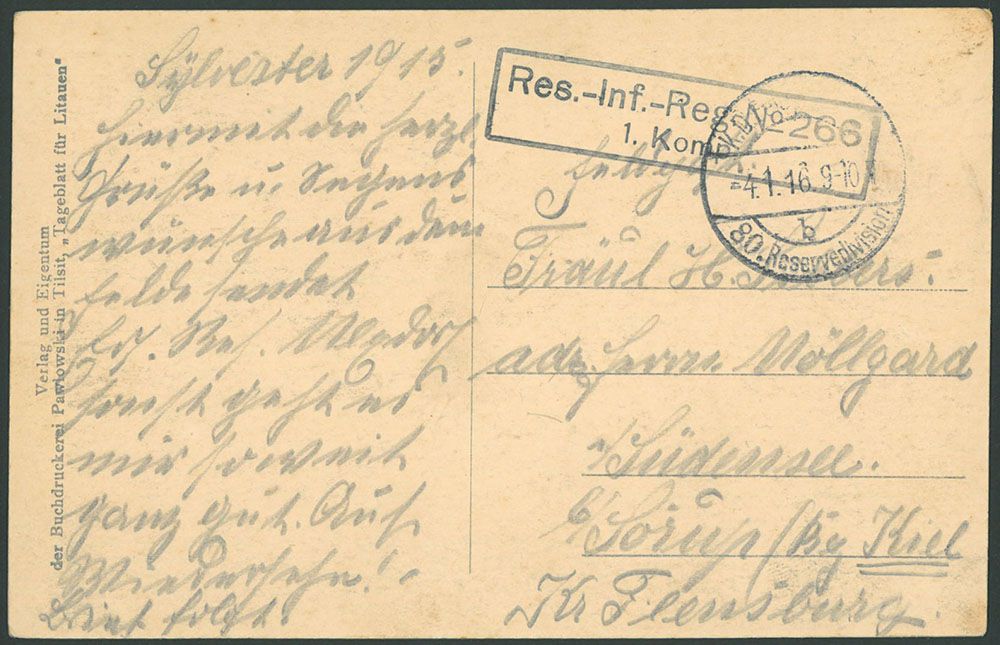 Sylvester 1915.
Hiermit die herzl.
Grüße u. Segens
wünsche aus dem
Felde sendet
Ers. Res.
sonst geht es
mir soweit
ganz gut. Auf
Wiedersehn!
Brief folgt.
Verlag und Eigentum
der Buchdruckerei Pawlowski in Tilsit, „Tageblatt für Litauen"
Res.-Inf.-Reg. № 266
1. Komp.
4.1.16. 9-10
b
80. Reservedivision
Feldpost.
Fräul H.
adr. Herrn Völlgard
Südensee.
b/ Sörup / Bz Kiel
Kr Flensburg.